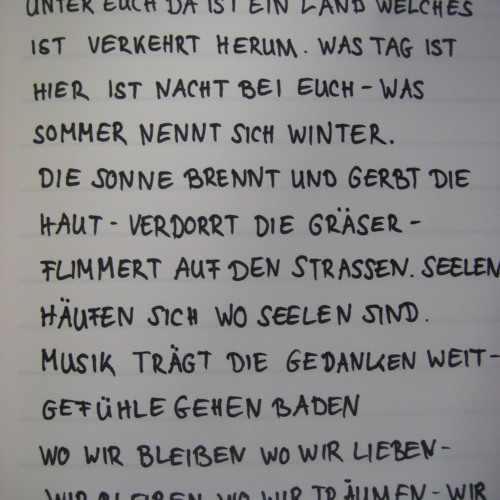 UNTER EUCH DA IST EIN LAND WELCHES
IST VERKEHRT HERUM. WAS TAG IST
HIER IST NACHT BEI EUCH - WAS
SOMMER NENNT SICH WINTER.
DIE SONNE BRENNT UND GERBT DIE
HAUT - VERDORRT DIE GRÄSER -
FLIMMERT AUF DEN STRASSEN. SEELEN
HÄUFEN SICH WO SEELEN SIND.
MUSIK TRÄGT DIE GEDANKEN WEIT -
GEFÜHLE GEHEN BADEN
WO WIR BLEIBEN WO WIR LIEBEN -
WIR BLEIBEN WO WIR TRÄUMEN - WIR